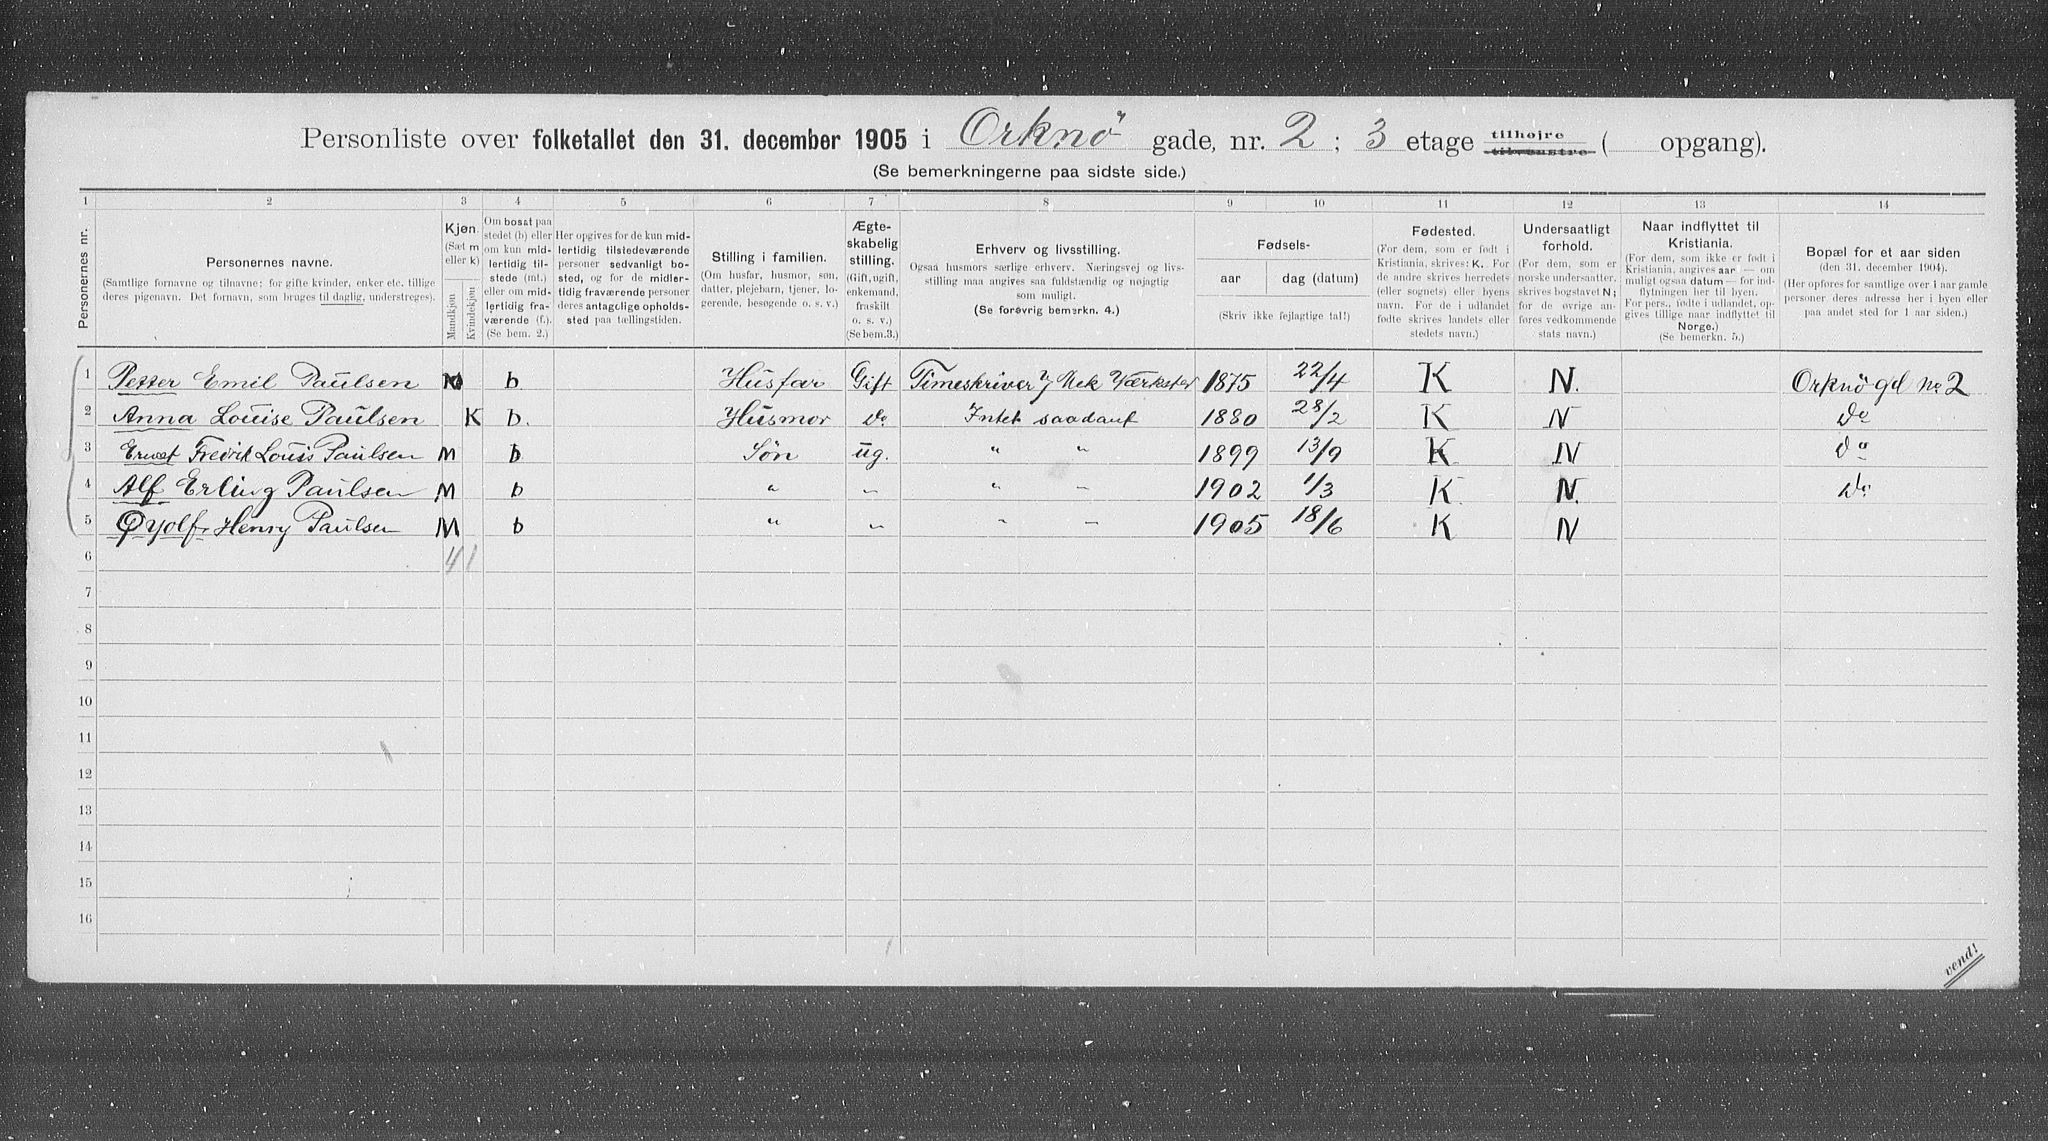 Personliste over folketallet den 31. december 1905 i Orknö gade, nr. 2 ; 3 etage tilhøjre tilvenstre ( opgang).
(Se bemerkningerne paa sidste side.)
1 2 3 4 5 6 7 8 9 10 11 12 13 14
Personernes nr.
Personernes navne.
(Samtlige fornavne og tilnavne; for gifte kvinder, enker etc. tillige
deres pigenavn. Det fornavn, som bruges til daglig, understreges).
Kjøn.
(Sæt m
eller k)
Mandkjøn
Kvindekjøn
Om bosat paa
stedet (b) eller
om kun mid-
lertidig tilste-
stede (mt.)
eller om mid-
lertidig fra-
værende (f.).
(Se bem. 2.)
Her opgives for de kun mid-
lertidig tilstedeværende
personer sedvanligt bo-
sted, og for de midler-
tidig fraværende personer
deres antagelige opholds-
sted paa tællingstiden.
Stilling i familien.
(Om husfar, husmor, søn,
datter, plejebarn, tjener, lo-
gerende, besøgende o. s. v.)
Ægte-
skabelig
stilling.
(Gift, ugift,
enkemand,
fraskilt
o. s. v.)
(Se bem. 3.)
Erhverv og livsstilling.
Ogsaa husmors særlige erhverv. Næringsvej og livs-
stilling maa angives saa fuldstændig og nøjagtig
som muligt.
(Se forøvrig bemerkn. 4.)
Fødsels-
aar
dag (datum)
(Skriv ikke fejlagtige tal!)
Fødested.
(For dem, som er født i
Kristiania, skrives: K. For
de andre skrives herredets
(eller sognets) eller byens
navn. For de i udlandet
fødte skrives landets eller
stedets navn.)
Undersaatligt
forhold.
(For dem, som er
norske undersaatter,
skrives bogstavet N;
for de øvrige an-
føres vedkommende
stats navn.)
Naar indflyttet til
Kristiania.
(For dem, som ikke er født i
Kristiania, angives aar — om
muligt ogsaa datum — for ind-
flytningen her til byen.
For pers., fødte i udlandet, op-
gives tillige naar indflyttet til
Norge.)
(Se bemerkn. 5.)
Bopæl for et aar siden
(den 31. december 1904).
(Her opføres for samtlige over 1 aar gamle
personer deres adresse her i byen eller
paa andet sted for 1 aar siden.)
1 Petter Emil Paulsen M b Husfar Gift Timeskriver v/ Mek Værksted 1875 22/4 K N. Orknögd No 2
2 Anna Louise Paulsen K b. Husmor do Intet saadant 1880 28/2 K N do
3 Ernst Fredrik Louis Paulsen M b Søn ug. " " 1899 13/9 K N do
4 Alf Erling Paulsen M b " " " — 1902 1/3 K N. do
5 Øyolf Henry Paulsen M b " " " — 1905 18/6 K N
6 4 1
7
8
9
10
11
12
13
14
15
16
vend!